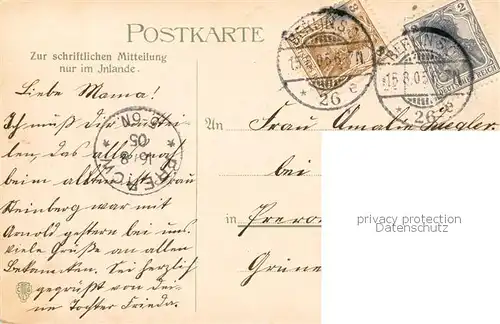 POSTKARTE
Zur schriftlichen Mitteilung
nur im Jnlande.
Liebe Mama!
Ich muß Dir mitteilen,
das alles
beim alten ist. Frau
Steinberg war mit
Arnold gestern bei uns.
Viele Grüße an allen
Bekannten. Sei herzlich
gegrüßt von Dei-
ne Tochter Frieda.
An Frau Amalie Ziegler.
bei
in
BERLIN S.
15.8.05.
* 26 e
BERLIN S.
15.8.05.
* 26 e
2
DEUTSCHES REICH
PREROW
16.8
05
privacy protection
overlay